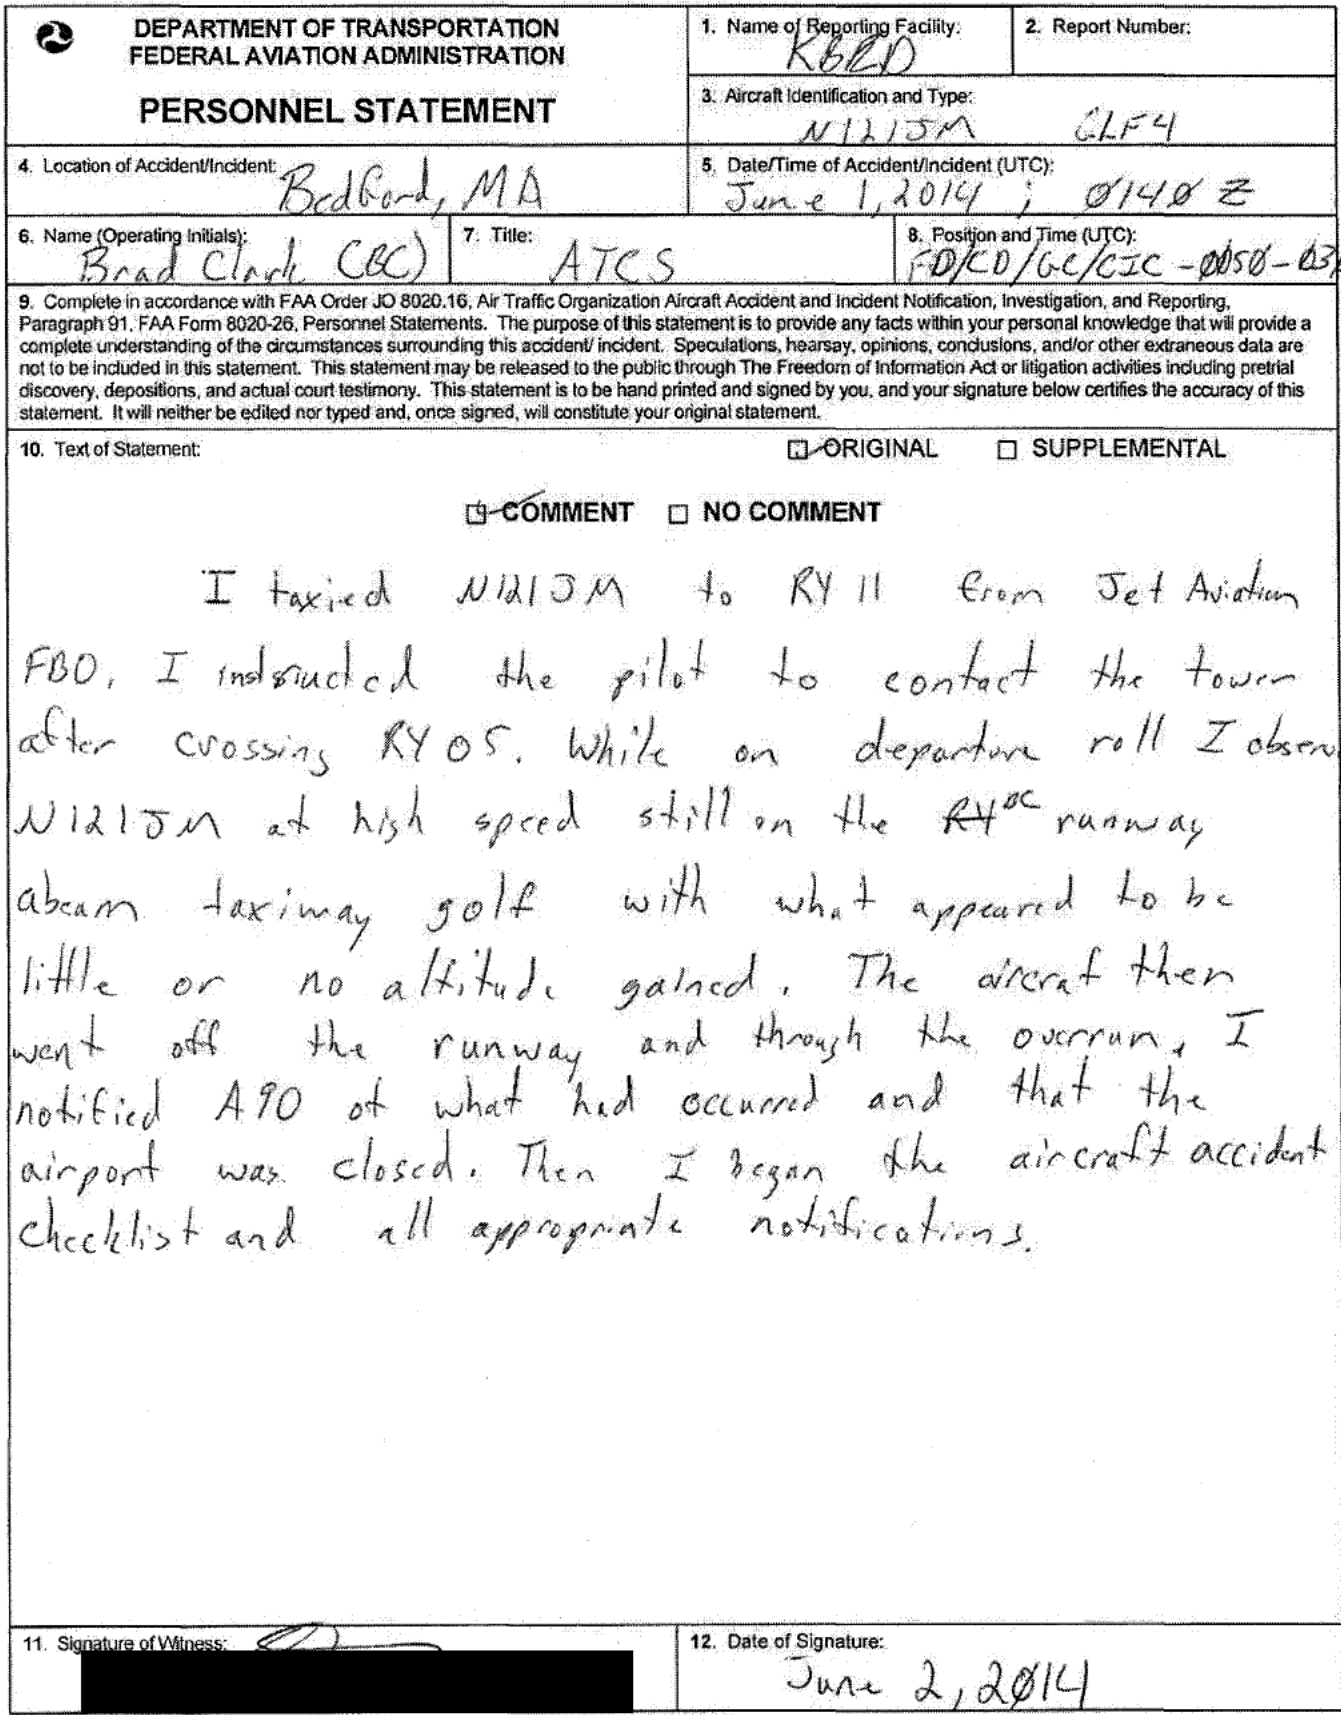 DEPARTMENT OF TRANSPORTATION
FEDERAL AVIATION ADMINISTRATION
PERSONNEL STATEMENT
1. Name of Reporting Facility:
KBED
2. Report Number:
3. Aircraft Identification and Type:
N121JM GLF4
4. Location of Accident/Incident:
Bedford, MA
5. Date/Time of Accident/Incident (UTC):
June 1, 2014 ; 0140 Z
6. Name (Operating Initials):
Brad Clark (BC)
7. Title:
ATCS
8. Position and Time (UTC):
FD/CD/GC/CIC - 0050 - 03
9. Complete in accordance with FAA Order JO 8020.16, Air Traffic Organization Aircraft Accident and Incident Notification, Investigation, and Reporting,
Paragraph 91, FAA Form 8020-26, Personnel Statements. The purpose of this statement is to provide any facts within your personal knowledge that will provide a
complete understanding of the circumstances surrounding this accident/ incident. Speculations, hearsay, opinions, conclusions, and/or other extraneous data are
not to be included in this statement. This statement may be released to the public through The Freedom of Information Act or litigation activities including pretrial
discovery, depositions, and actual court testimony. This statement is to be hand printed and signed by you, and your signature below certifies the accuracy of this
statement. It will neither be edited nor typed and, once signed, will constitute your original statement.
10. Text of Statement:
ORIGINAL SUPPLEMENTAL
COMMENT NO COMMENT
I taxied N121JM to RY 11 from Jet Aviation
FBO. I instructed the pilot to contact the tower
after crossing RY 05. While on departure roll I observ
N121JM at high speed still on the RY BC runway
abeam taxiway golf with what appeared to be
little or no altitude gained. The aircraf then
went off the runway and through the overrun. I
notified A90 of what had occurred and that the
airport was closed. Then I began the aircraft accident
checklist and all appropriate notifications.
11. Signature of Witness:
12. Date of Signature:
June 2, 2014